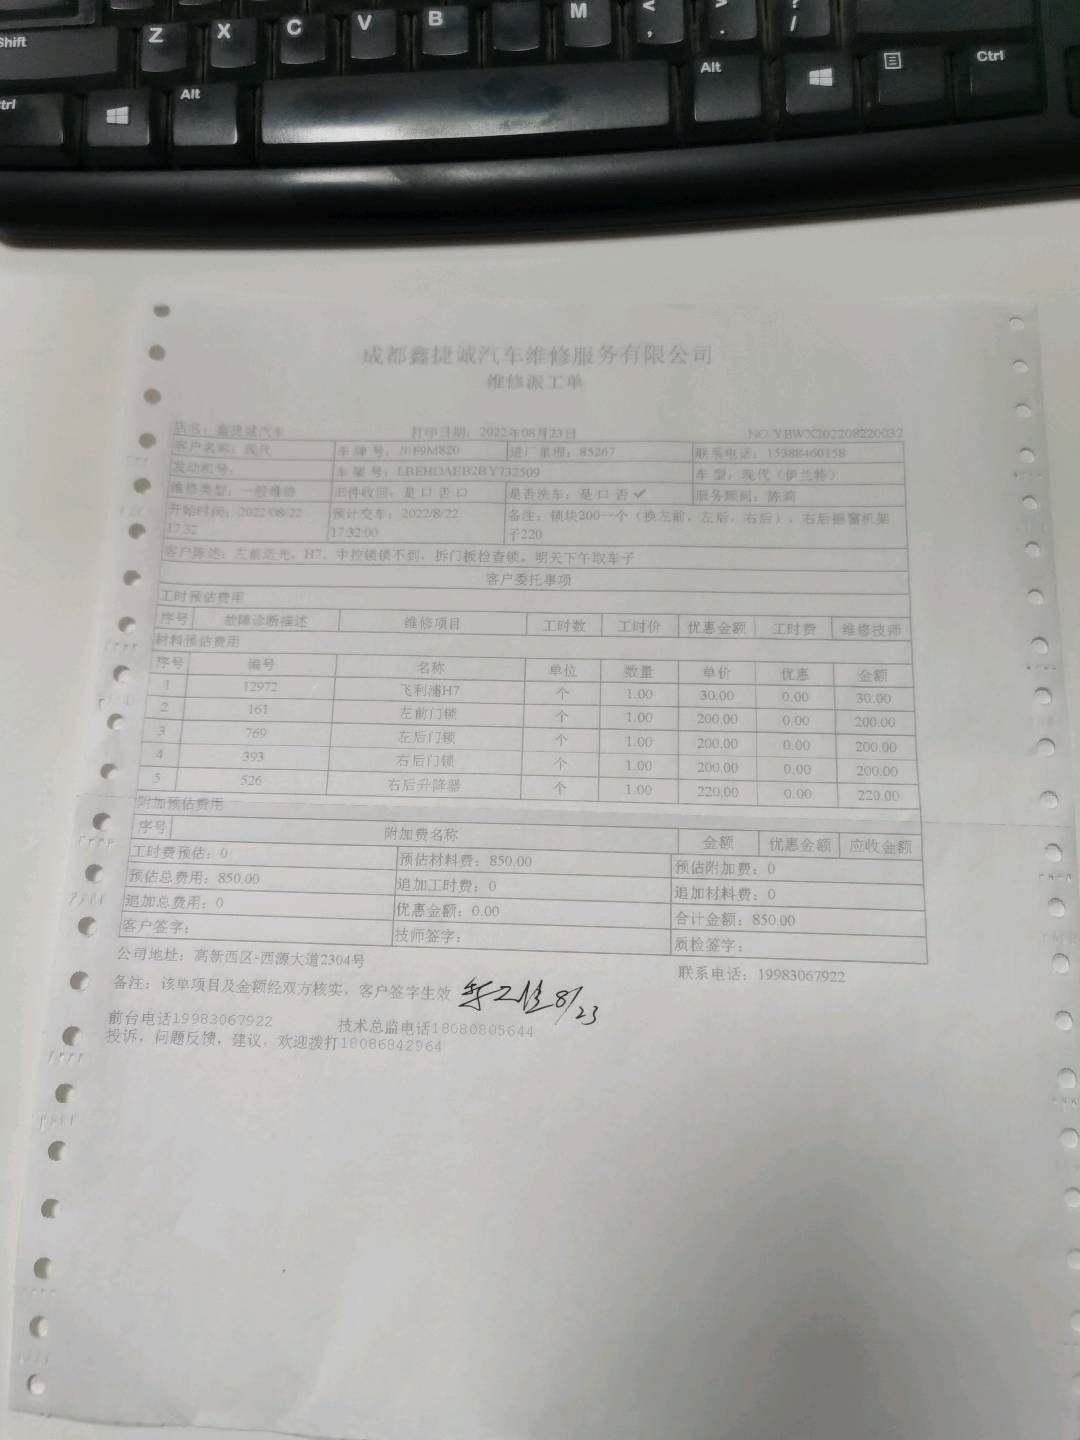 Shift Z X C V B M < , > . ? /
Ctrl Alt Alt Ctrl
成都鑫捷诚汽车维修服务有限公司
维修派工单
店名：鑫捷诚汽车 打印日期：2022年08月23日 NO YBWX202208220032
客户名称：现代 车牌号：川F9M820 进厂里程：85267 联系电话：15388460158
发动机号： 车架号：LBEHDAEB2BY732509 车型：现代（伊兰特）
维修类型：一般维修 旧件收回：是口 否口 是否洗车：是口 否✓ 服务顾问：陈莉
开始时间：2022/08/22 17:32 预计交车：2022/8/22 17:32:00 备注：锁块200一个（换左前，左后，右后），右后摇窗机架子220
客户陈述：左前近光，H7，中控锁锁不到，拆门板检查锁，明天下午取车子
客户委托事项
工时预估费用
序号 故障诊断描述 维修项目 工时数 工时价 优惠金额 工时费 维修技师
材料预估费用
序号 编号 名称 单位 数量 单价 优惠 金额
1 12972 飞利浦H7 个 1.00 30.00 0.00 30.00
2 161 左前门锁 个 1.00 200.00 0.00 200.00
3 769 左后门锁 个 1.00 200.00 0.00 200.00
4 393 右后门锁 个 1.00 200.00 0.00 200.00
5 526 右后升降器 个 1.00 220.00 0.00 220.00
附加预估费用
序号 附加费名称 金额 优惠金额 应收金额
工时费预估：0 预估材料费：850.00 预估附加费：0
预估总费用：850.00 追加工时费：0 追加材料费：0
追加总费用：0 优惠金额：0.00 合计金额：850.00
客户签字： 技师签字： 质检签字：
公司地址：高新西区-西源大道2304号 联系电话：19983067922
备注：该单项目及金额经双方核实，客户签字生效 8/23
前台电话19983067922 技术总监电话18080805644
投诉，问题反馈，建议，欢迎拨打18086842964